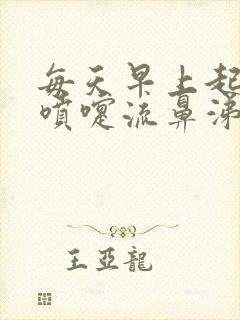 每天早上起
噴嚏流鼻涕
王亞龍